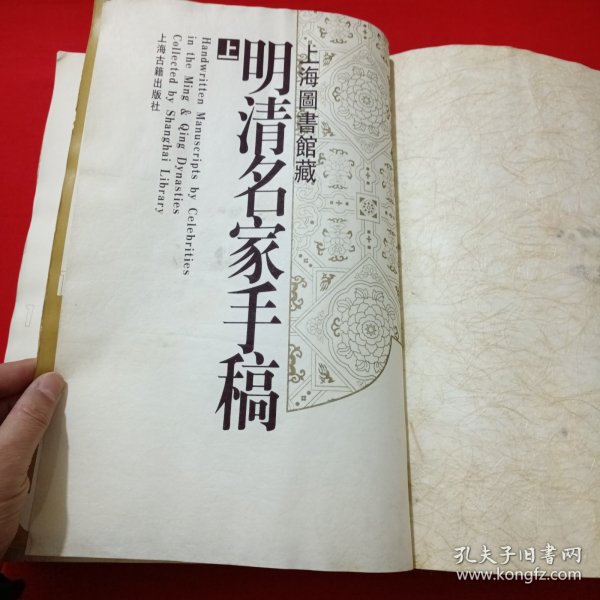 上海圖書館藏
明清名家手稿
上
Handwritten Manuscripts by Celebrities
in the Ming & Qing Dynasties
Collected by Shanghai Library
上海古籍出版社
孔夫子旧书网
www.kongfz.com